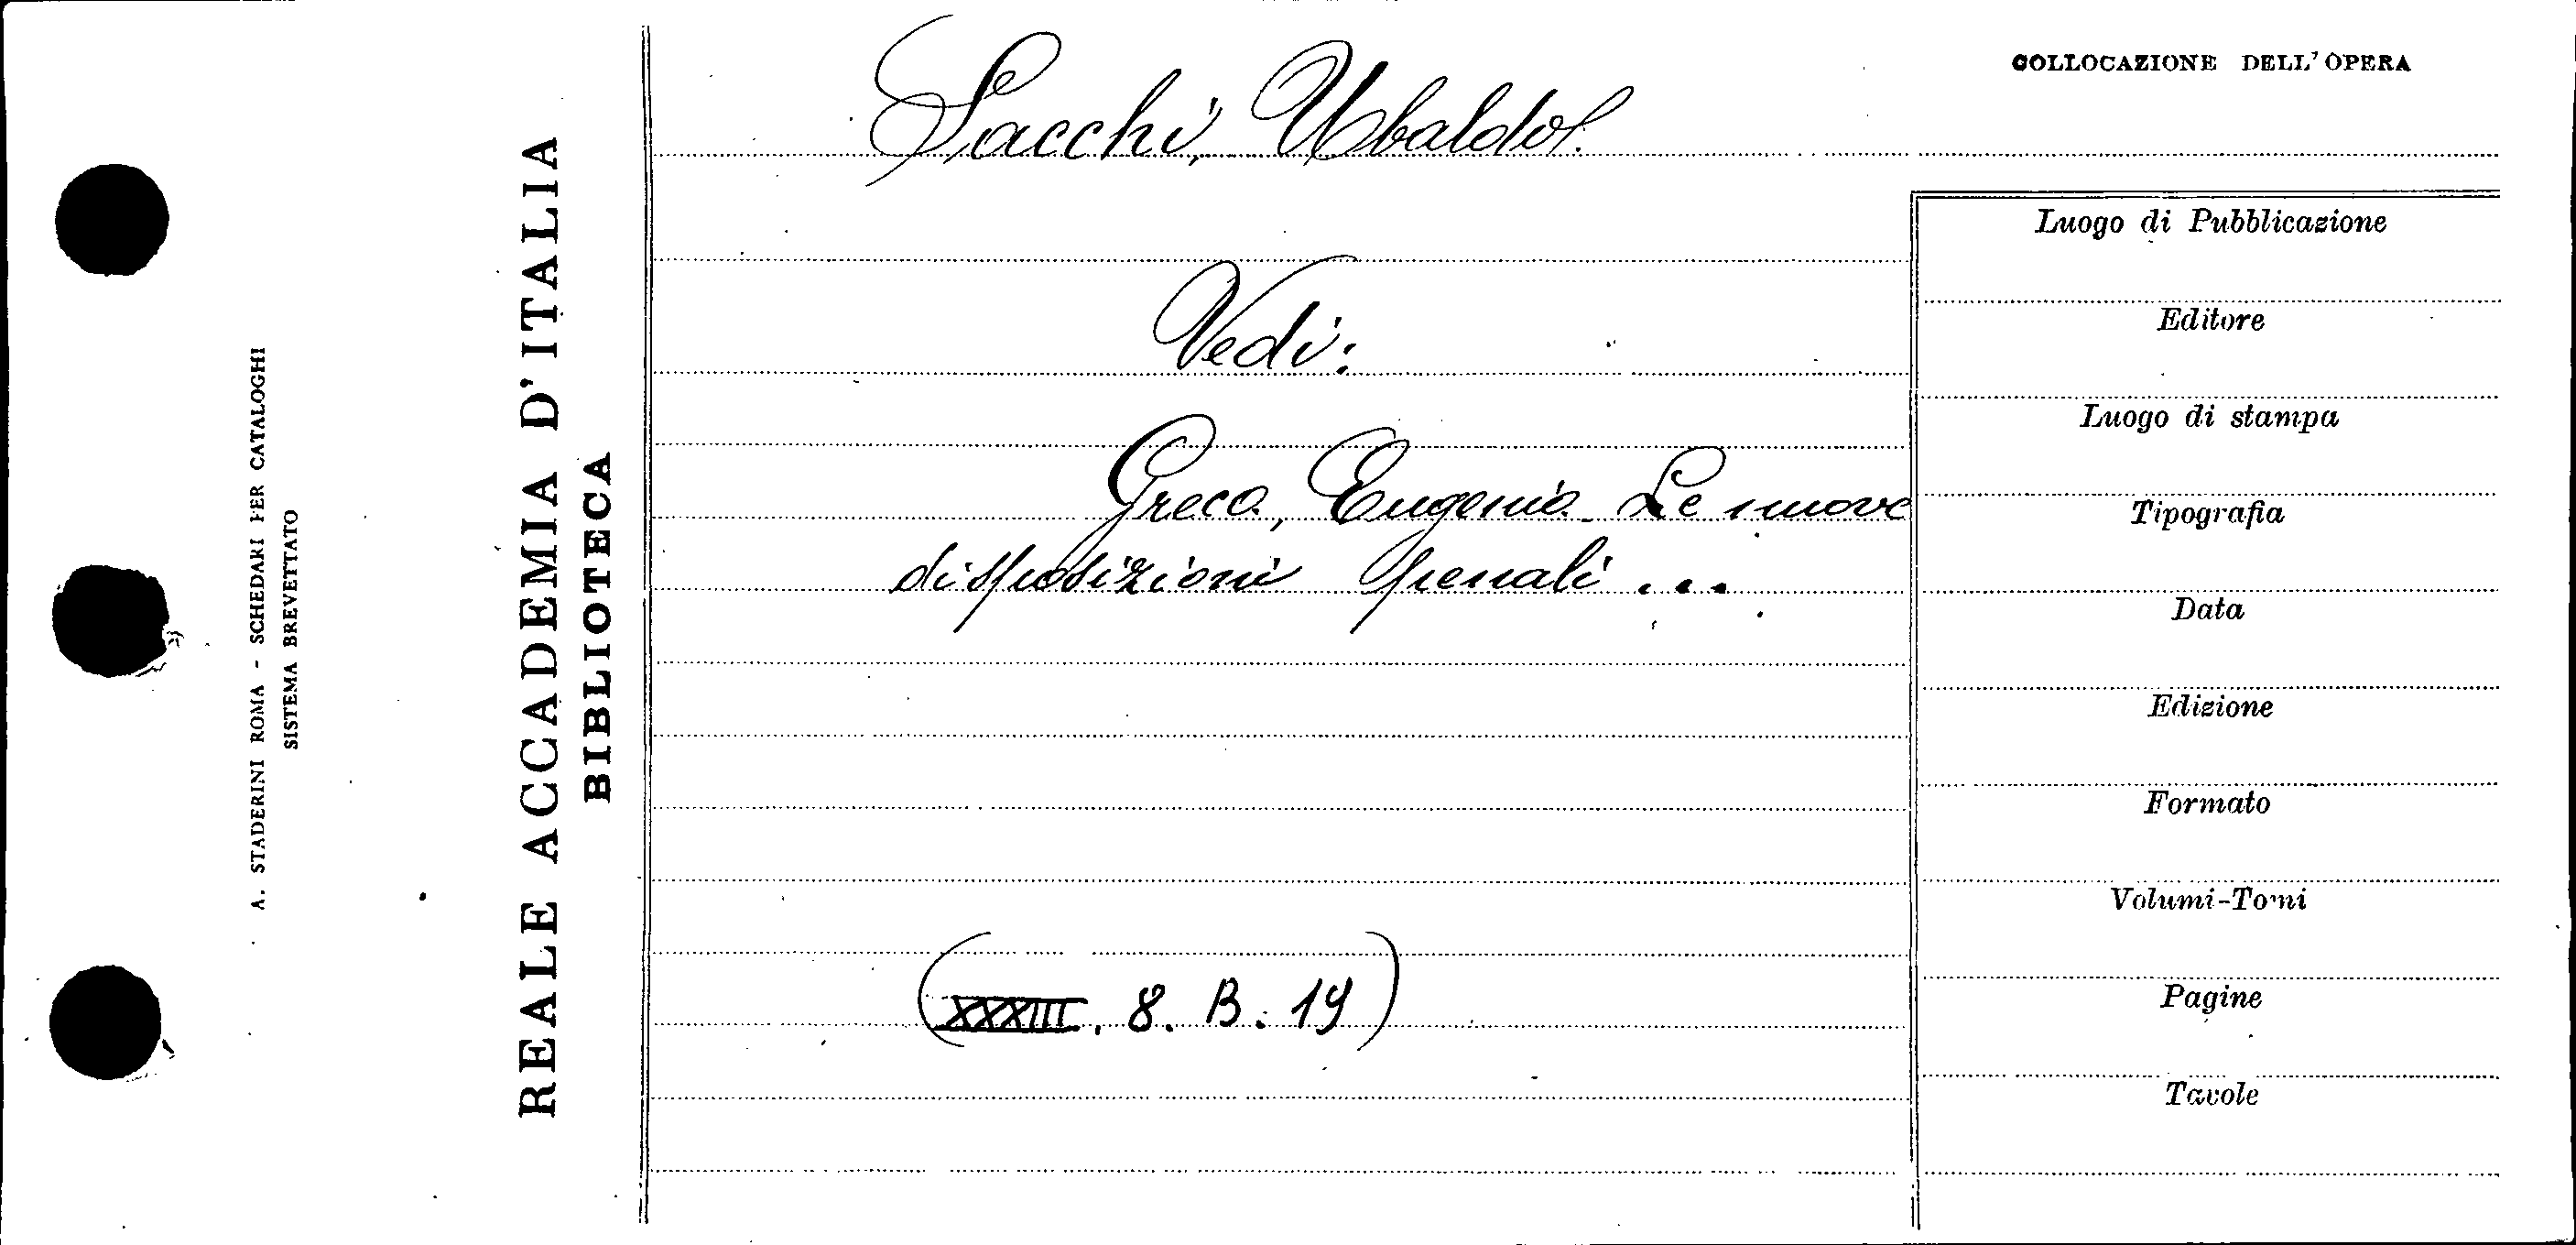 A. STADERINI ROMA - SCHEDARI PER CATALOGHI
SISTEMA BREVETTATO
REALE ACCADEMIA D'ITALIA
BIBLIOTECA
Sacchi, Ubaldo.
Vedi:
Greco, Eugenio - Le nuove
disposizioni penali ...
(XXXIII. 8. B. 19)
COLLOCAZIONE DELL'OPERA
Luogo di Pubblicazione
Editore
Luogo di stampa
Tipografia
Data
Edizione
Formato
Volumi-Tomi
Pagine
Tavole